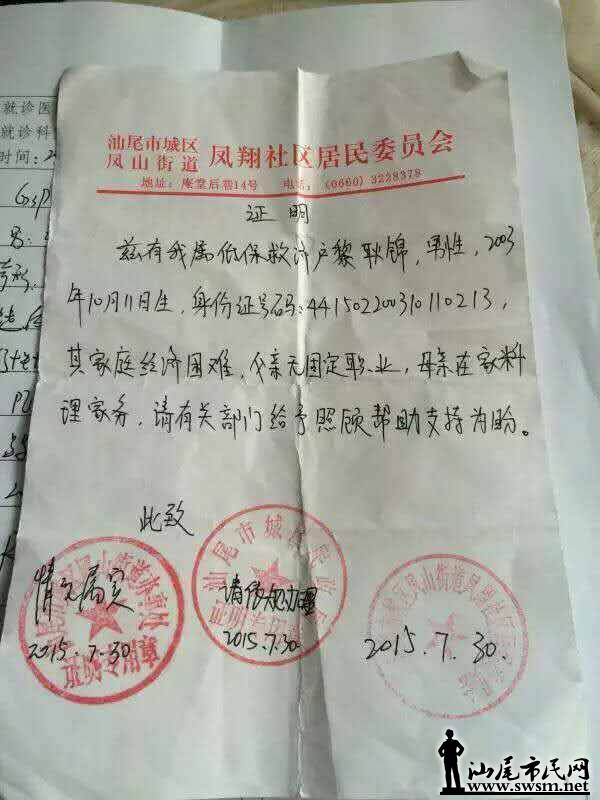 就诊医
就诊科
时间：2
汕尾市城区
凤山街道 凤翔社区居民委员会
地址：庵堂后巷14号 电话：(0660) 3228378
证明
兹有我属低保救济户黎耿锦，男性，2003
年10月11日生，身份证号码：441502200310110213，
其家庭经济困难，父亲无固定职业，母亲在家料
理家务，请有关部门给予照顾帮助支持为盼。
此致
情况属实
2015.7.30
请依规办理
2015.7.30
2015.7.30.
汕尾市民网
www.swsm.net